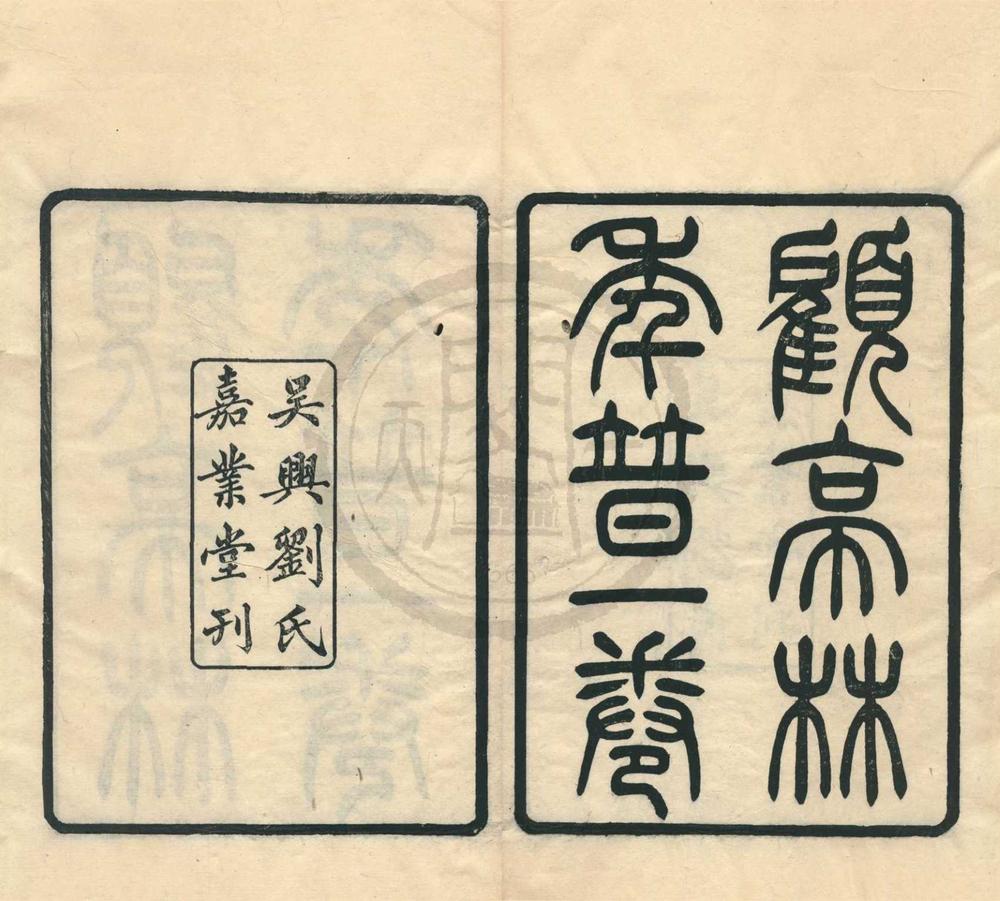 顧亭林
年普一卷
吴興劉氏
嘉業堂刊